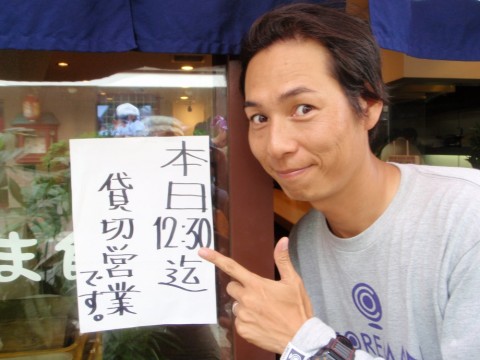 本日12:30迄
貸切営業です。
ま